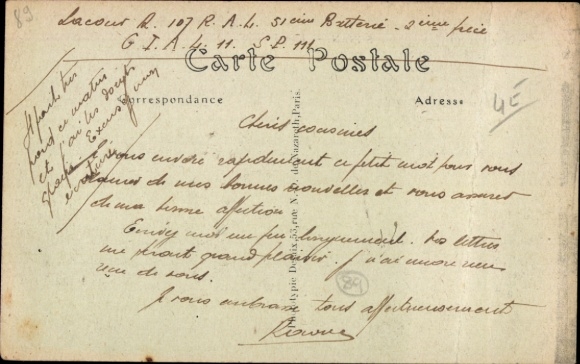 89
Lacour R. 107 R.A.L. 51eme Batterie. 2ème pièce
G.I.A.L. 11. S.P. 111
Carte Postale
Correspondance
Adresse
4E
Il fait très
froid ce matin
et j'ai les doigts
Excusez mon
écriture
Chers cousines
Vous envoie rapidement ce petit mot pour vous
donner de mes bonnes nouvelles et vous assurer
de ma bonne affection
Ecrivez moi un peu longuement. Les lettres
me font grand plaisir. J'n'ai encore rien
reçu de vous.
89
Je vous embrasse tous affectueusement
Phototypie Desaix, 53, rue N.-D. de Nazareth, Paris.